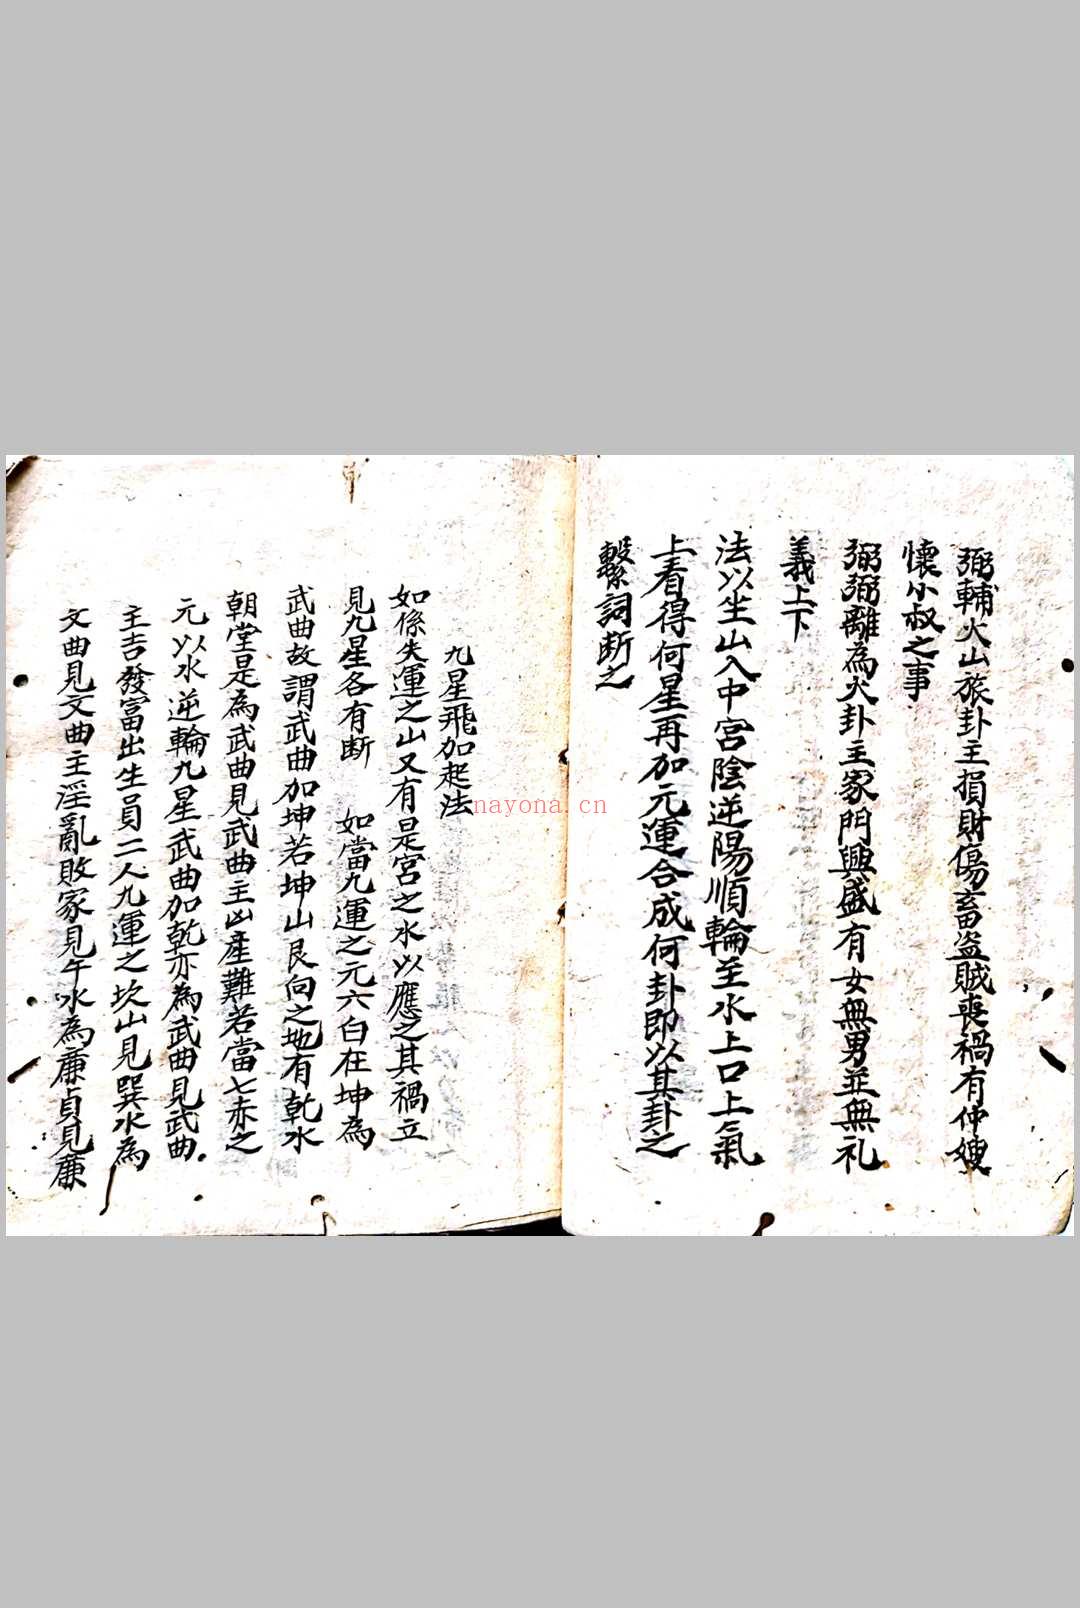 弼輔火山旅卦主損財傷畜盗賊喪禍有仲嫂
懷小叔之事
弼弼離為火卦主家門興盛有女無男並無礼
義上下
法以生山入中宮陰逆陽順輪至水上口上氣
上看得何星再加元運合成何卦即以其卦之
繫詞断之
九星飛加起法
如係失運之山又有是宮之水以應之其禍立
見九星各有断 如當九運之元六白在坤為
武曲故謂武曲加坤若坤山艮向之地有乾水
朝堂是為武曲見武曲主凶產難若當七赤之
元以水逆輪九星武曲加乾亦為武曲見武曲
主吉發富出生員二人九運之坎山見巽水為
文曲見文曲主淫亂敗家見午水為廉貞見廉
nayona.cn